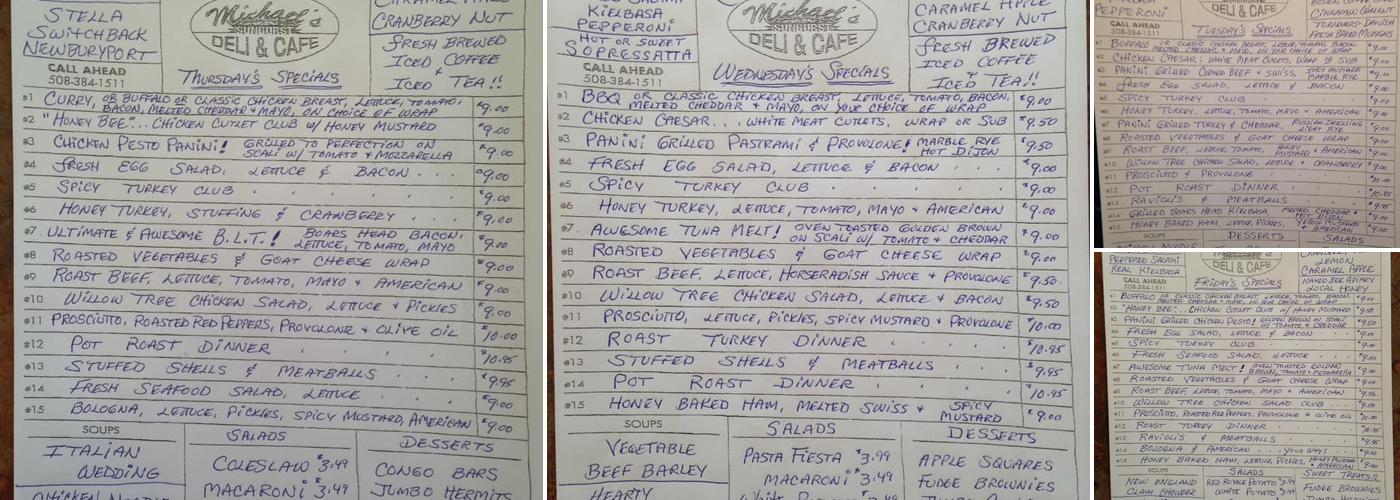 STELLA
SWITCHBACK
NEWBURYPORT
CALL AHEAD
508-384-1511
Michael's
SUNBURST
DELI & CAFE
THURSDAY'S SPECIALS
CRANBERRY NUT
FRESH BREWED
ICED COFFEE
+
ICED TEA!!
#1 CURRY, OR BUFFALO OR CLASSIC CHICKEN BREAST, LETTUCE, TOMATO,
BACON, MELTED CHEDDAR + MAYO, ON CHOICE OF WRAP $9.00
#2 "HONEY BEE"... CHICKEN CUTLET CLUB W/ HONEY MUSTARD $9.00
#3 CHICKEN PESTO PANINI! GRILLED TO PERFECTION ON
SCALI W/ TOMATO + MOZZARELLA $9.00
#4 FRESH EGG SALAD, LETTUCE & BACON $9.00
#5 SPICY TURKEY CLUB $9.00
#6 HONEY TURKEY, STUFFING & CRANBERRY $9.00
#7 ULTIMATE & AWESOME B.L.T.! BOARS HEAD BACON,
LETTUCE, TOMATO, MAYO $9.00
#8 ROASTED VEGETABLES & GOAT CHEESE WRAP $9.00
#9 ROAST BEEF, LETTUCE, TOMATO, MAYO + AMERICAN $9.00
#10 WILLOW TREE CHICKEN SALAD, LETTUCE + PICKLES $9.00
#11 PROSCIUTTO, ROASTED RED PEPPERS, PROVOLONE + OLIVE OIL $10.00
#12 POT ROAST DINNER $10.95
#13 STUFFED SHELLS & MEATBALLS $9.95
#14 FRESH SEAFOOD SALAD, LETTUCE $9.00
#15 BOLOGNA, LETTUCE, PICKLES, SPICY MUSTARD, AMERICAN $9.00
SOUPS
ITALIAN
WEDDING
SALADS
COLESLAW $3.49
MACARONI $3.49
DESSERTS
CONGO BARS
JUMBO HERMITS
KIELBASA
PEPPERONI
HOT OR SWEET
SOPRESSATTA
CALL AHEAD
508-384-1511
Michael's
SUNBURST
DELI & CAFE
WEDNESDAY'S SPECIALS
CARAMEL APPLE
CRANBERRY NUT
FRESH BREWED
ICED COFFEE
+
ICED TEA!!
#1 BBQ OR CLASSIC CHICKEN BREAST, LETTUCE, TOMATO, BACON,
MELTED CHEDDAR + MAYO, ON YOUR CHOICE OF WRAP $9.00
#2 CHICKEN CAESAR... WHITE MEAT CUTLETS, WRAP OR SUB $9.50
#3 PANINI GRILLED PASTRAMI & PROVOLONE! MARBLE RYE
HOT DIJON $9.50
#4 FRESH EGG SALAD, LETTUCE & BACON $9.00
#5 SPICY TURKEY CLUB $9.00
#6 HONEY TURKEY, LETTUCE, TOMATO, MAYO + AMERICAN $9.00
#7 AWESOME TUNA MELT! OVEN TOASTED GOLDEN BROWN
ON SCALI W/ TOMATO + CHEDDAR $9.00
#8 ROASTED VEGETABLES & GOAT CHEESE WRAP $9.00
#9 ROAST BEEF, LETTUCE, HORSERADISH SAUCE + PROVOLONE $9.50
#10 WILLOW TREE CHICKEN SALAD, LETTUCE + BACON $9.50
#11 PROSCIUTTO, LETTUCE, PICKLES, SPICY MUSTARD + PROVOLONE $10.00
#12 ROAST TURKEY DINNER $10.95
#13 STUFFED SHELLS & MEATBALLS $9.95
#14 POT ROAST DINNER $10.95
#15 HONEY BAKED HAM, MELTED SWISS & SPICY
MUSTARD $9.00
SOUPS
VEGETABLE
BEEF BARLEY
HEARTY
SALADS
PASTA FIESTA $3.99
MACARONI $3.49
DESSERTS
APPLE SQUARES
FUDGE BROWNIES
PEPPERONI
CALL AHEAD
508-384-1511
DELI & CAFE
TUESDAY'S SPECIALS
CINNAMON
TURNOVERS DANISH
FRESH BAKED MUFFINS
BUFFALO OR CLASSIC CHICKEN BREAST, LETTUCE, TOMATO, BACON,
MELTED CHEDDAR + MAYO, ON YOUR CHOICE OF WRAP $9.00
CHICKEN CAESAR: WHITE MEAT CUTLETS, WRAP OR SUB
PANINI GRILLED CORNED BEEF & SWISS, MARBLE RYE
FRESH EGG SALAD, LETTUCE & BACON
SPICY TURKEY CLUB
HONEY TURKEY, LETTUCE, TOMATO, MAYO & AMERICAN
PANINI GRILLED TURKEY & CHEDDAR, RUSSIAN DRESSING
LIGHT RYE
ROASTED VEGETABLES & GOAT CHEESE WRAP
ROAST BEEF, LETTUCE, TOMATO, HONEY
MUSTARD + AMERICAN
#10 WILLOW TREE CHICKEN SALAD, LETTUCE + CRANBERRY
#11 PROSCIUTTO & PROVOLONE
#12 POT ROAST DINNER
#13 RAVIOLIS & MEATBALLS
#14 GRILLED BOARS HEAD KIELBASA, MELTED CHEDDAR +
HOT DIJON
#15 HONEY BAKED HAM, LETTUCE, PICKLES,
AMERICAN
SOUPS
DESSERTS
SALADS
PEPPERED SALAMI
REAL KIELBASA
CALL AHEAD
508-384-1511
DELI & CAFE
FRIDAY'S SPECIALS
LEMON
CARAMEL APPLE
NAKED BEE APIARY
LOCAL HONEY
BUFFALO OR CLASSIC CHICKEN BREAST, LETTUCE, TOMATO, BACON,
MELTED CHEDDAR + MAYO, ON YOUR CHOICE OF WRAP
"HONEY BEE".. CHICKEN CUTLET CLUB W/ HONEY MUSTARD
PANINI GRILLED CHICKEN PESTO! GOLDEN BROWN ON SCALI
W/ TOMATO + CHEDDAR
FRESH EGG SALAD, LETTUCE & BACON
SPICY TURKEY CLUB
FRESH SEAFOOD SALAD, LETTUCE
AWESOME TUNA MELT! OVEN TOASTED GOLDEN
BACON, TOMATO + MOZZARELLA
ROASTED VEGETABLES & GOAT CHEESE WRAP
ROAST BEEF, LETTUCE, TOMATO, MAYO & AMERICAN
#10 WILLOW TREE CHICKEN SALAD CLUB
#11 PROSCIUTTO, ROASTED RED PEPPERS, PROVOLONE & OLIVE OIL
#12 ROAST TURKEY DINNER
#13 RAVIOLIS & MEATBALLS
#14 BOLOGNA & AMERICAN ... YOUR WAY!
HONEY BAKED HAM, LETTUCE, PICKLES, HONEY MUSTARD
+ AMERICAN
SOUPS
NEW ENGLAND
CLAM CHOWDER
SALADS
RED ROYALE POTATO
WHITE POTATO
SWEET TREATS
FUDGE BROWNIES